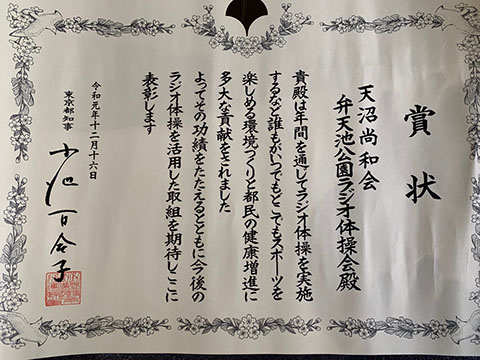 賞状
天沼尚和会
弁天池公園ラジオ体操会殿
貴殿は年間を通してラジオ体操を実施
するなど誰もがいつでもどこでもスポーツを
楽しめる環境づくりと都民の健康増進に
多大な貢献をされました
よってその功績をたたえるとともに今後の
ラジオ体操を活用した取組を期待しここに
表彰します
令和元年十二月十六日
東京都知事
小池百合子